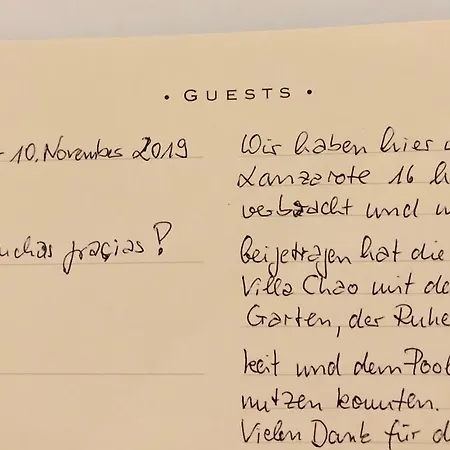 • GUESTS •
10. November 2019
Muchas gracias!
Wir haben hier
Lanzarote 16
verbracht und
beigetragen hat die
Villa Chao mit
Garten, der Ruhe
keit und dem Pool
nutzen konnten.
Vielen Dank für